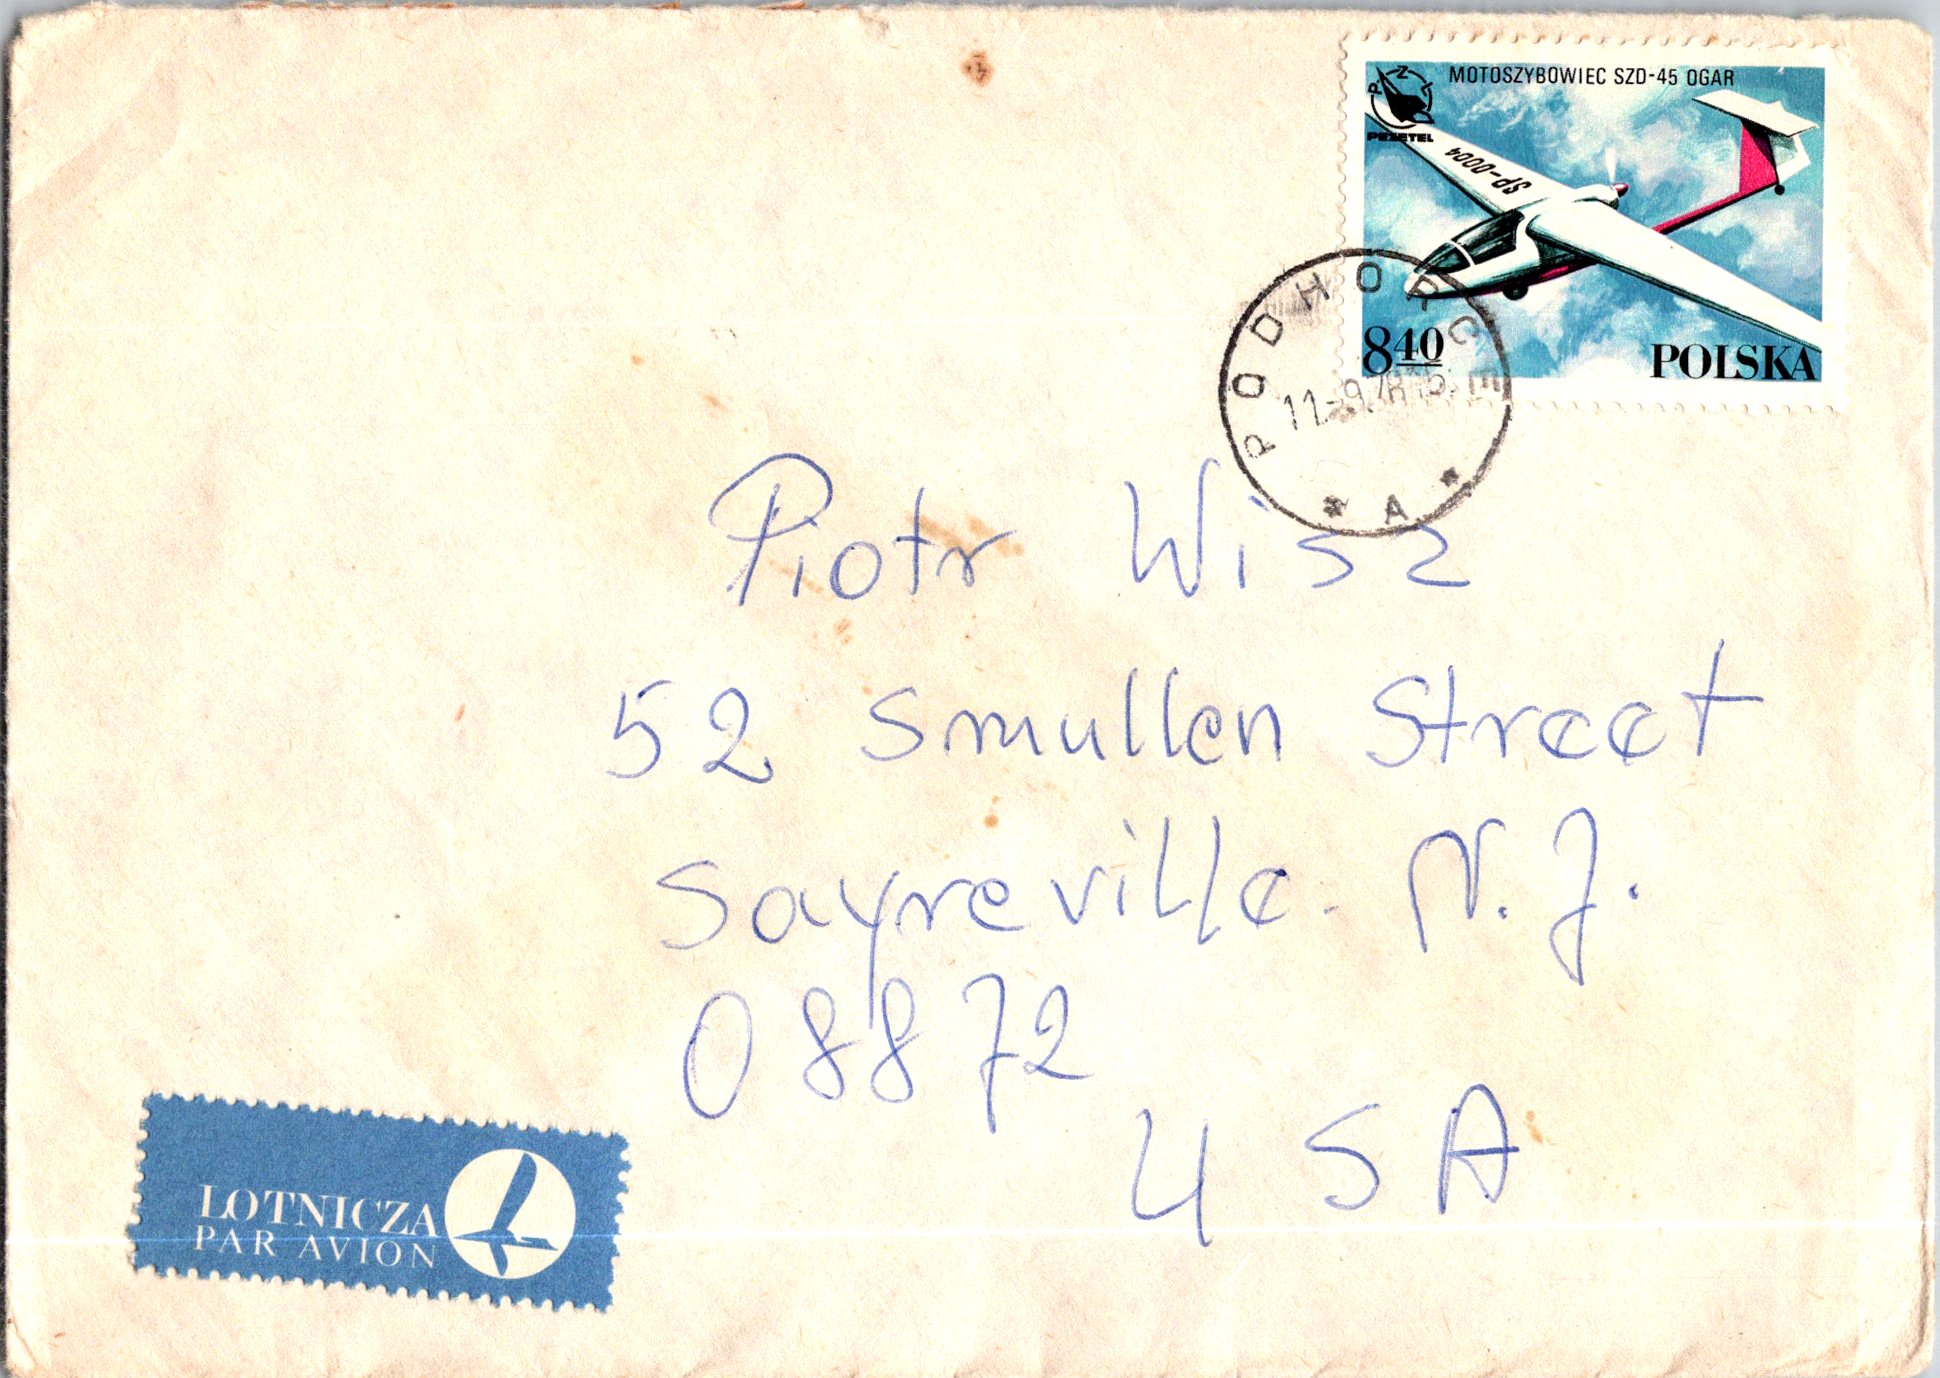 MOTOSZYBOWIEC SZD-45 OGAR
PZL
PEZETEL
SP-0004
8 40
POLSKA
PODHORCE
11.-9.78
* A *
Piotr Wisz
52 Smullen Street
Sayreville. N.J.
08872
USA
LOTNICZA
PAR AVION